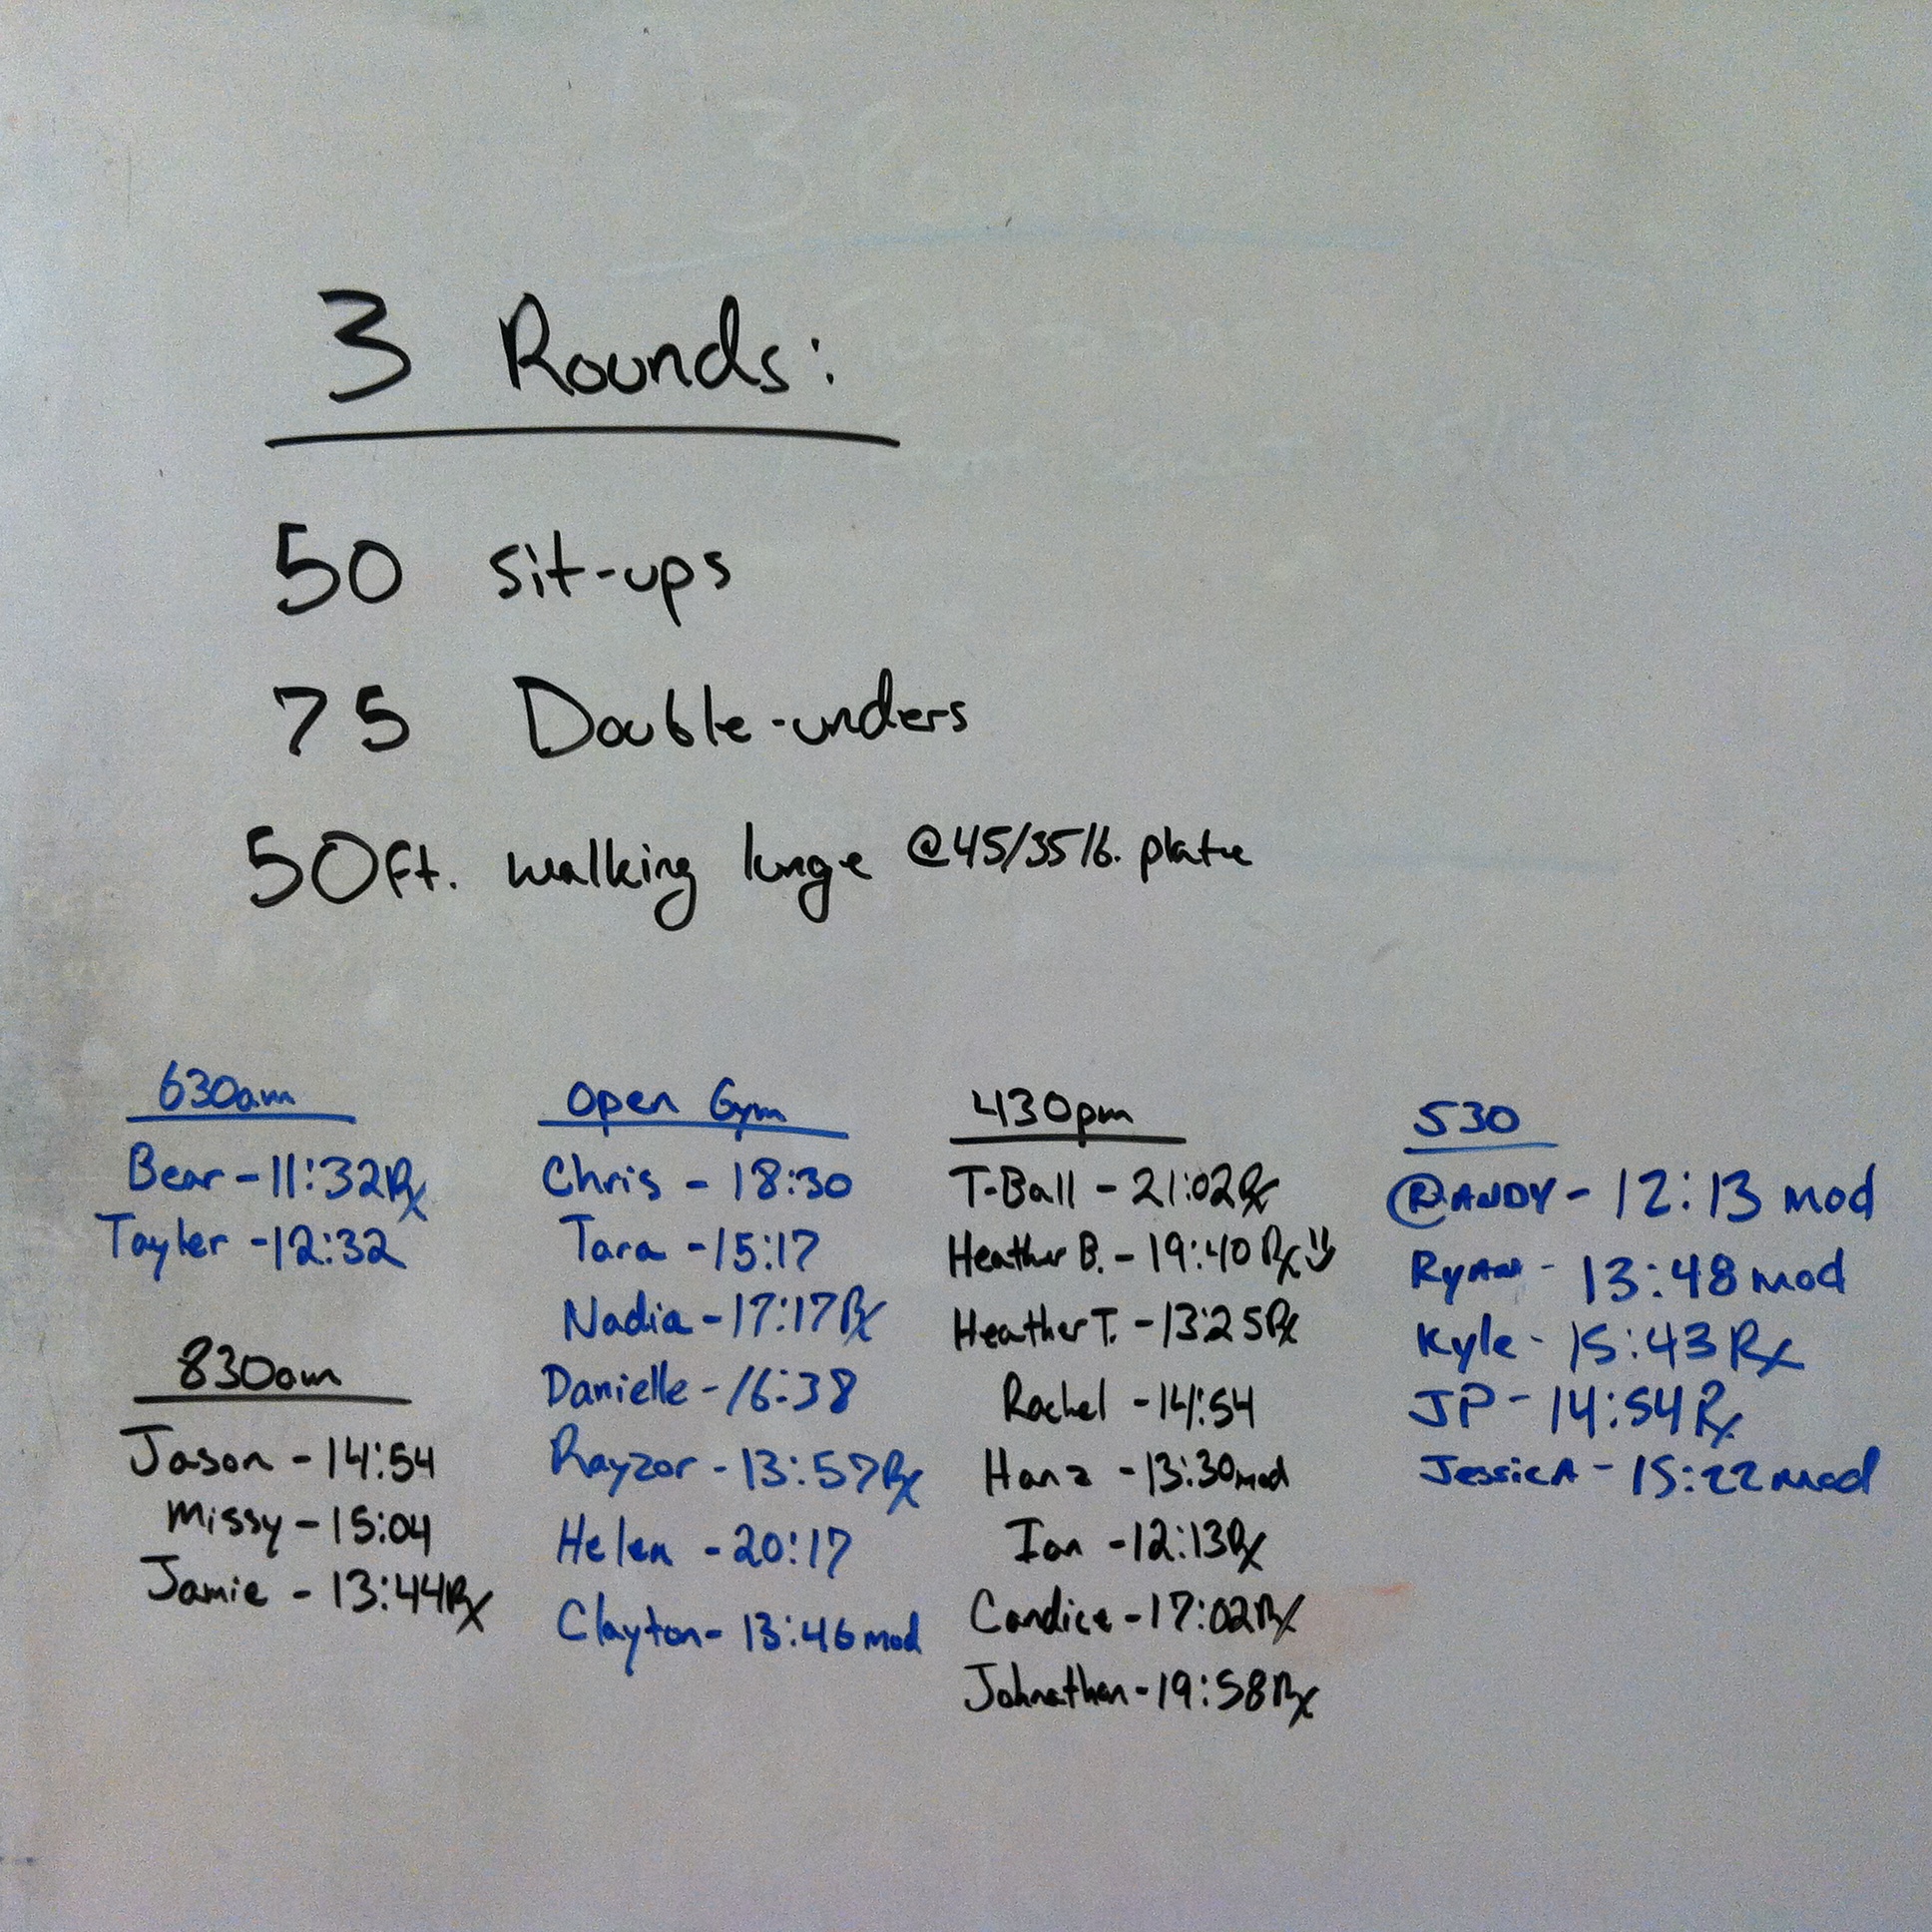 3 Rounds:
50 sit-ups
75 Double-unders
50ft. walking lunge @45/35lb. plate
630am
Bear - 11:32 Rx
Tayler - 12:32
830am
Jason - 14:54
Missy - 15:04
Jamie - 13:44 Rx
Open Gym
Chris - 18:30
Tara - 15:17
Nadia - 17:17 Rx
Danielle - 16:38
Rayzor - 13:57 Rx
Helen - 20:17
Clayton - 13:46 mod
430pm
T-Ball - 21:02 Rx
Heather B. - 19:40 Rx
Heather T. - 13:25 Rx
Rachel - 14:54
Hanz - 13:30 mod
Ian - 12:13 Rx
Candice - 17:02 Rx
Johnathan - 19:58 Rx
530
@RANDY - 12:13 mod
RyAN - 13:48 mod
Kyle - 15:43 Rx
JP - 14:54 Rx
JessicA - 15:22 mod